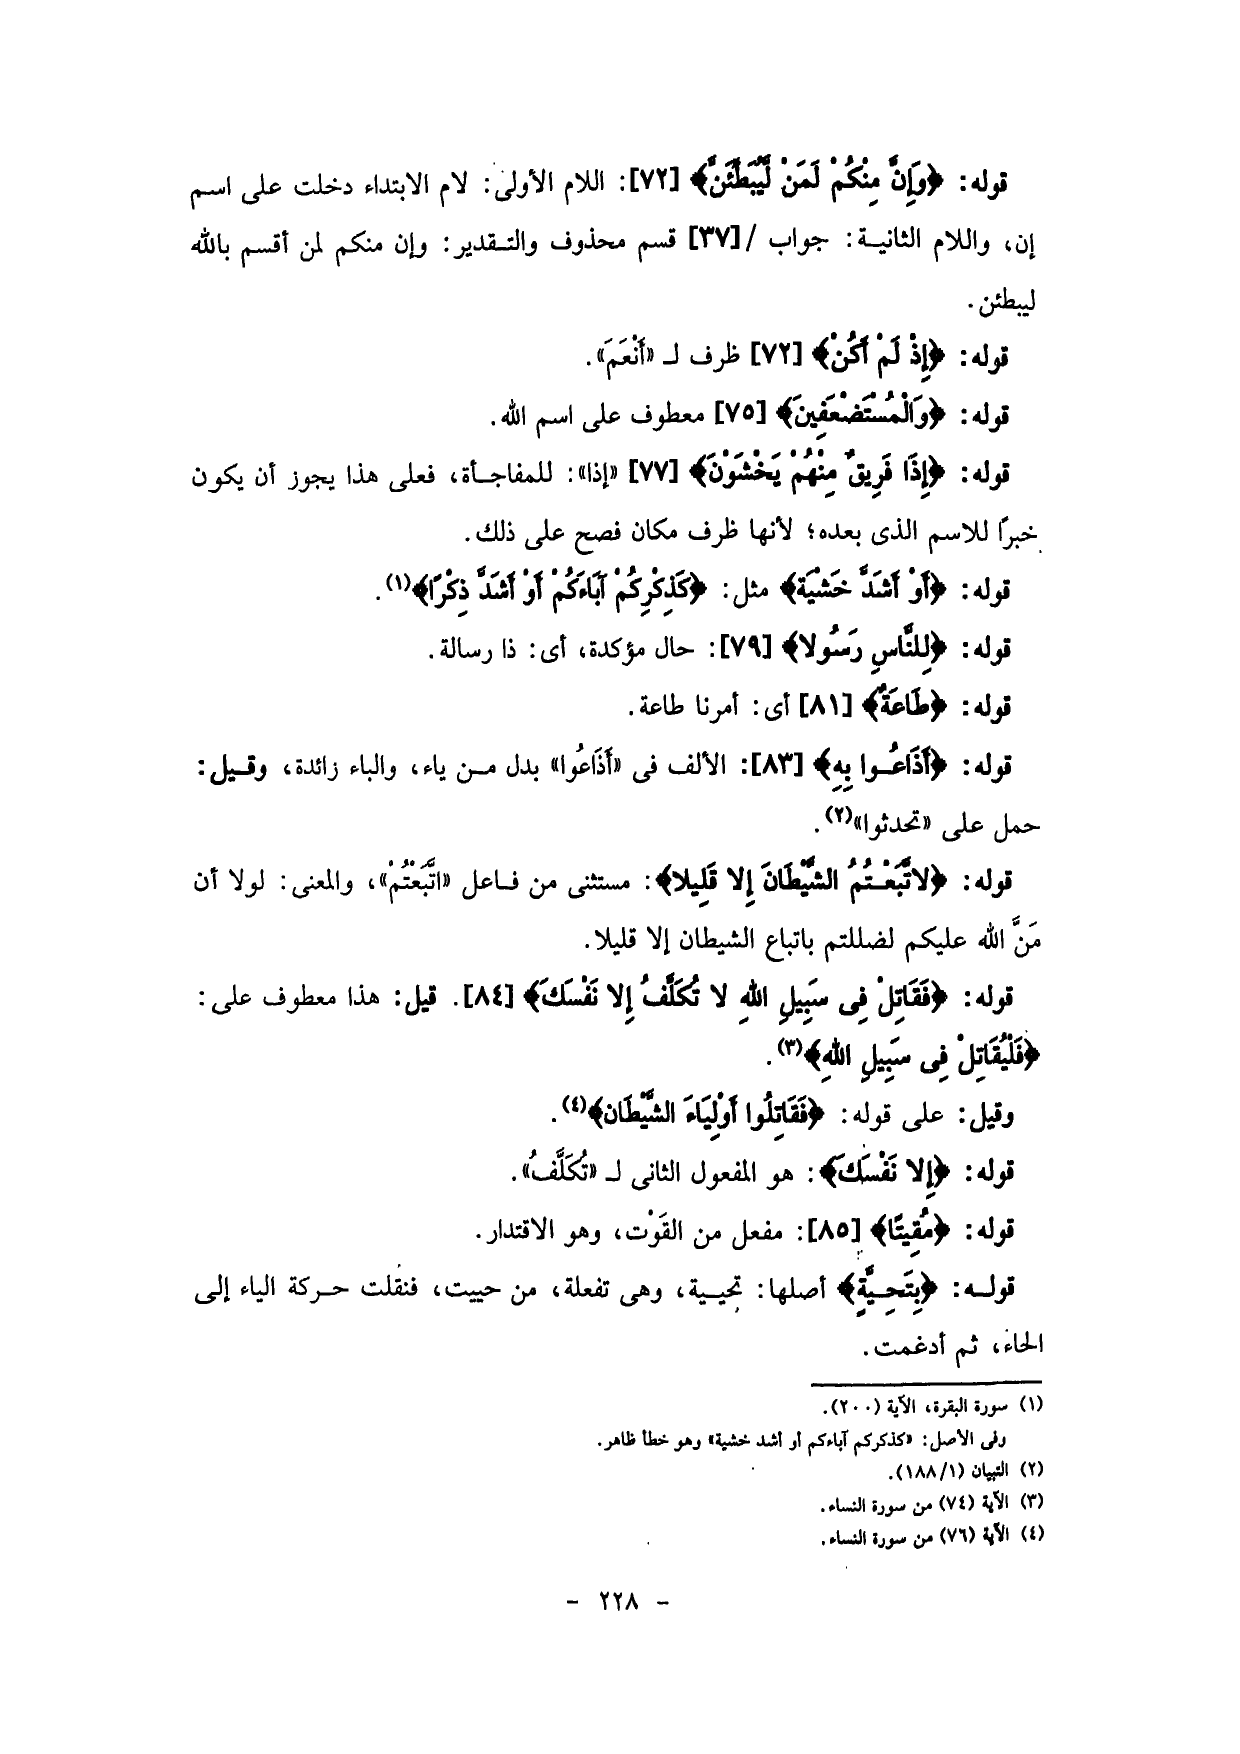 قوله: ﴿وَإِنَّ مِنْكُمْ لَمَنْ لَّيُبَطِّئَنَّ﴾ [٧٢]: اللام الأولى: لام الابتداء دخلت على اسم
إن، واللام الثانية: جواب /[٣٧] قسم محذوف والتقدير: وإن منكم لمن أقسم بالله
ليبطئن.
قوله: ﴿إِذْ لَمْ أَكُنْ﴾ [٧٢] ظرف لـ «أَنْعَمَ».
قوله: ﴿وَالْمُسْتَضْعَفِينَ﴾ [٧٥] معطوف على اسم الله.
قوله: ﴿إِذَا فَرِيقٌ مِنْهُمْ يَخْشَوْنَ﴾ [٧٧] «إذا»: للمفاجأة، فعلى هذا يجوز أن يكون
خبرًا للاسم الذى بعده؛ لأنها ظرف مكان فصح على ذلك.
قوله: ﴿أَوْ أَشَدَّ خَشْيَة﴾ مثل: ﴿كَذِكْرِكُمْ آبَاءَكُمْ أَوْ أَشَدَّ ذِكْرًا﴾(١).
قوله: ﴿لِلنَّاسِ رَسُولا﴾ [٧٩]: حال مؤكدة، أى: ذا رسالة.
قوله: ﴿طَاعَةٌ﴾ [٨١] أى: أمرنا طاعة.
قوله: ﴿أَذَاعُوا بِهِ﴾ [٨٣]: الألف فى «أَذَاعُوا» بدل من ياء، والباء زائدة، وقيل:
حمل على «تحدثوا»(٢).
قوله: ﴿لاتَّبَعْتُمُ الشَّيْطَانَ إِلا قَلِيلا﴾: مستثنى من فاعل «اتَّبَعْتُمْ»، والمعنى: لولا أن
مَنَّ الله عليكم لضللتم باتباع الشيطان إلا قليلا.
قوله: ﴿فَقَاتِلْ فِى سَبِيلِ اللهِ لا تُكَلَّفُ إِلا نَفْسَكَ﴾ [٨٤]. قيل: هذا معطوف على:
﴿فَلْيُقَاتِلْ فِى سَبِيلِ اللهِ﴾(٣).
وقيل: على قوله: ﴿فَقَاتِلُوا أَوْلِيَاءَ الشَّيْطَان﴾(٤).
قوله: ﴿إِلا نَفْسَكَ﴾: هو المفعول الثانى لـ «تُكَلَّفُ».
قوله: ﴿مُقِيتًا﴾ [٨٥]: مفعل من القَوْت، وهو الاقتدار.
قوله: ﴿بِتَحِيَّةٍ﴾ أصلها: تحيية، وهى تفعلة، من حييت، فنقلت حركة الياء إلى
الحاء، ثم أدغمت.
(١) سورة البقرة، الآية (٢٠٠).
وفى الأصل: «كذكركم آباءكم أو أشد خشية» وهو خطأ ظاهر.
(٢) التبيان (١٨٨/١).
(٣) الآية (٧٤) من سورة النساء.
(٤) الآية (٧٦) من سورة النساء.
- ٢٢٨ -